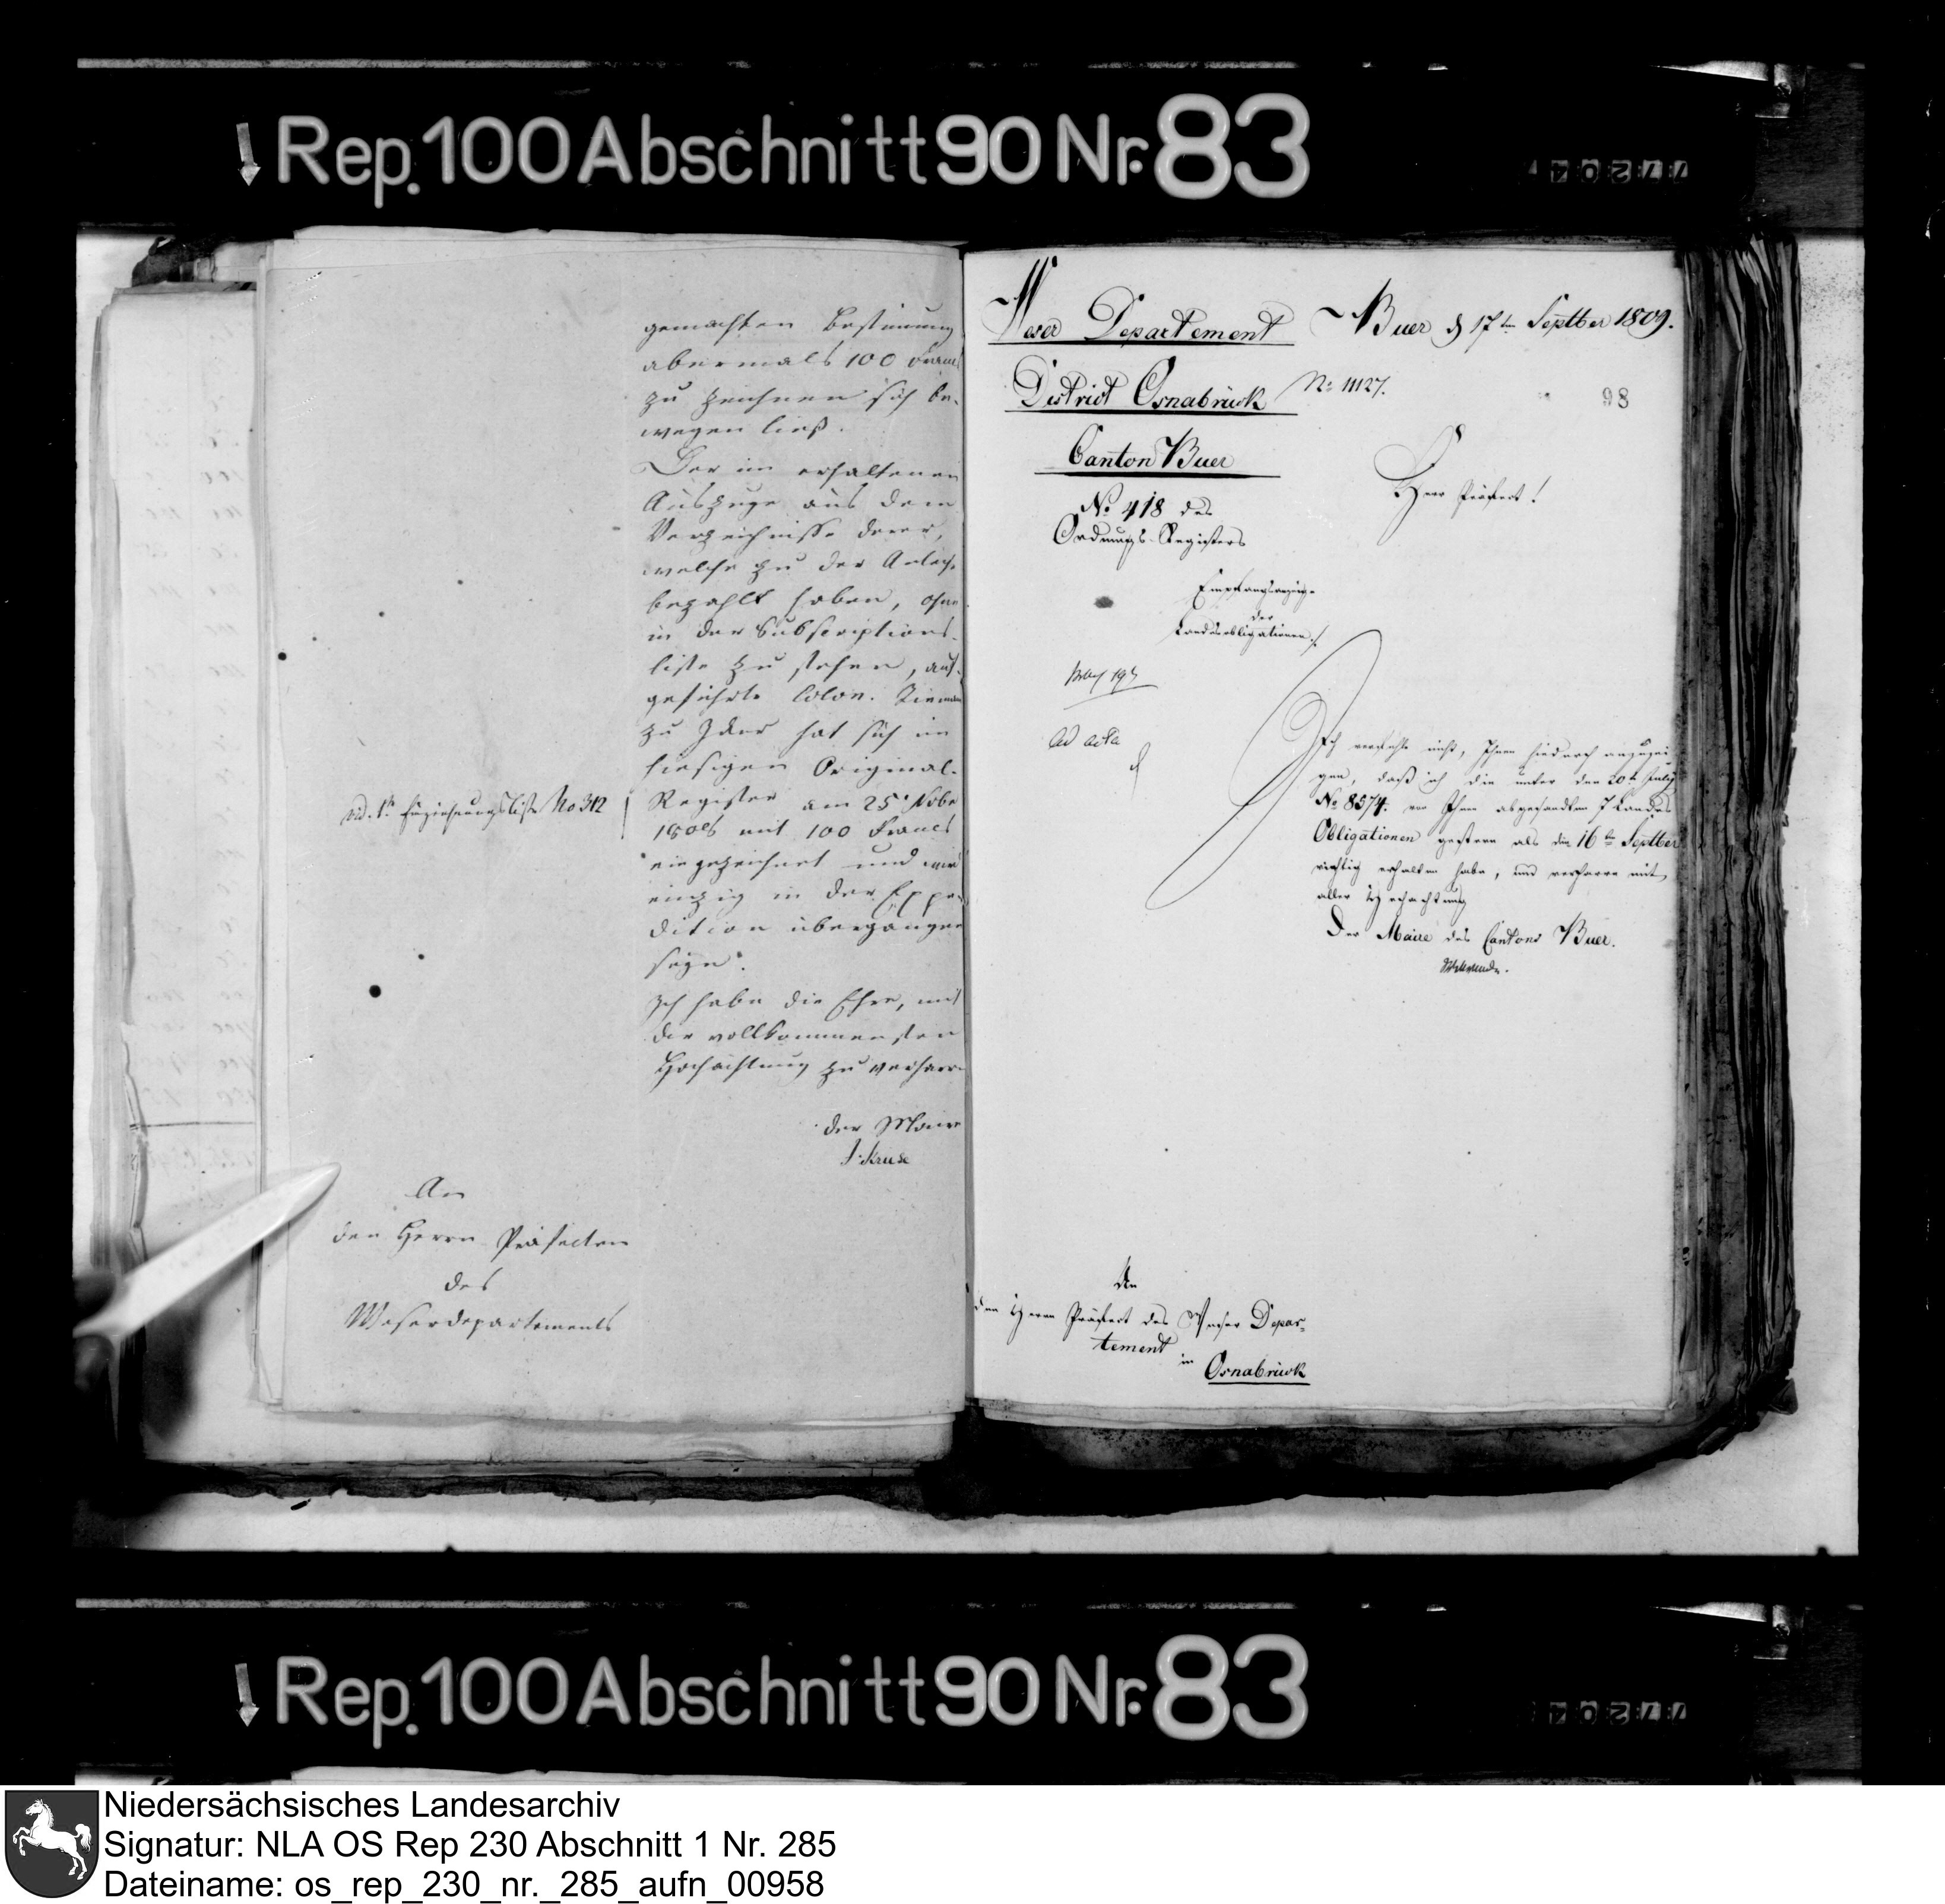 Rep. 100 Abschnitt 90 Nr. 83
77204
gemachten Bestimmung
abermals 100 Francs
zu zeichnen sich be-
wegen ließ.
Der im erhaltenen
Auszuge aus dem
Verzeichnisse derer,
welche zu der Anleihe
bezahlt haben, ohne
in der Subscriptions-
liste zu stehen, auf-
geführte Colon.
zu Iker hat sich im
hiesigen Original-
Register am 25. Nobr
1808 mit 100 Francs
eingezeichnet und
einzig in der Expe-
dition übergangen
seyn.
Ich habe die Ehre, mit
der vollkommensten
Hochachtung zu verharren
der Maire
J. Kruse
vid. 1te Einziehungsliste No 312
An
den Herrn Präfecten
des
Weserdepartements
Weser Departement
Buer d 17ten Septber 1809.
District Osnabrück
No 11127.
98
Canton Buer
No 418 des
Ordnungs-Registers
Herr Präfect!
Empfangsanzeige
der
Landesobligationen
ad acta
Ich verfehle nicht, Ihnen hiedurch anzuzei-
gen, daß ich die unter den 20t July
No 8574. von Ihnen abgesandten 7 Landes
Obligationen gestern als den 16ten Septber
richtig erhalten habe, und verharre mit
aller Hochachtung
Der Maire des Cantons Buer.
An
den Herrn Präfect des Weser Depar-
tement
in Osnabrück
Rep. 100 Abschnitt 90 Nr. 83
77204
Niedersächsisches Landesarchiv
Signatur: NLA OS Rep 230 Abschnitt 1 Nr. 285
Dateiname: os_rep_230_nr._285_aufn_00958